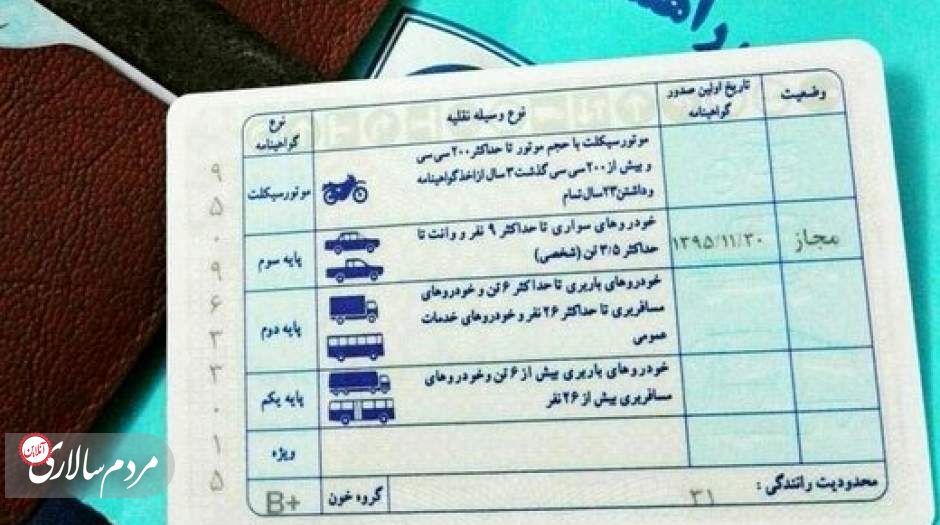 وضعیت
تاریخ اولین صدور
گواهینامه
نوع وسیله نقلیه
نوع
گواهینامه
موتورسیکلت با حجم موتور تا حداکثر ۲۰۰ سی سی
و بیش از ۲۰۰ سی سی گذشت ۳ سال از اخذ گواهینامه
و داشتن ۲۳ سال تمام
موتورسیکلت
مجاز
۱۳۹۵/۱۱/۳۰
خودروهای سواری تا حداکثر ۹ نفر و وانت تا
حداکثر ۳/۵ تن (شخصی)
پایه سوم
خودروهای باربری تا حداکثر ۶ تن و خودروهای
مسافربری تا حداکثر ۲۶ نفر و خودروهای خدمات
عمومی
پایه دوم
خودروهای باربری بیش از ۶ تن و خودروهای
مسافربری بیش از ۲۶ نفر
پایه یکم
ویژه
محدودیت رانندگی :
۳۱
گروه خون
B+
۹
۵
۰
۹
۶
۳
۳
۰
۱
۵
مردم سالاری
آنلاین